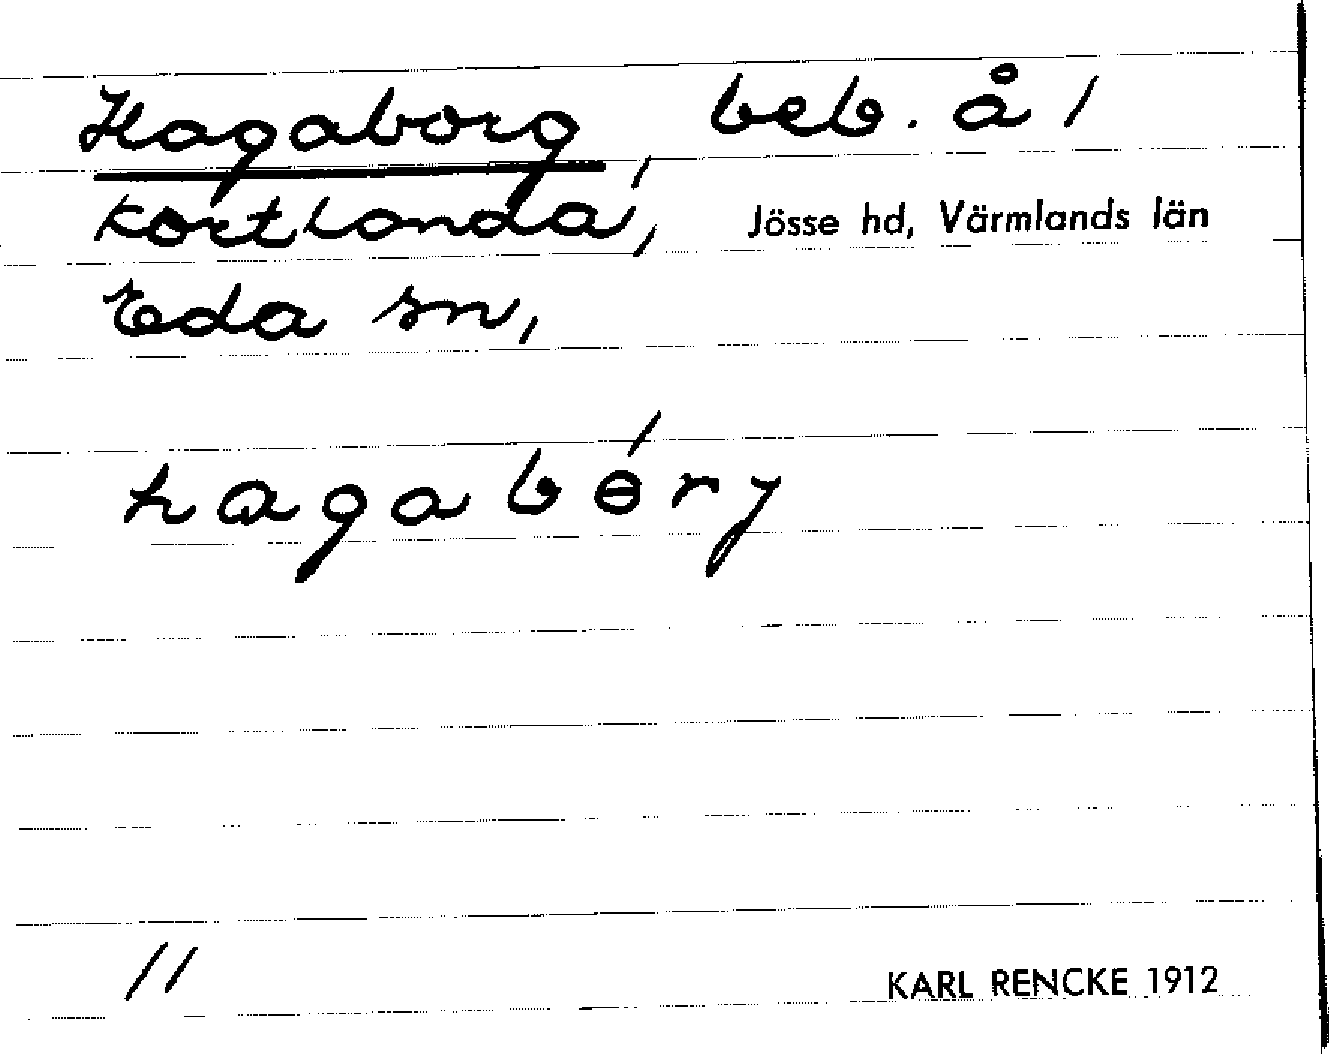 Hagaborg beb. å /
Kortlanda, Jösse hd, Värmlands län
Eda sn,
hagabéry
11
KARL RENCKE 1912